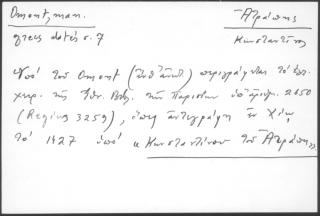 Omont, man.
grecs datés σ. 7
Ἀτράπης
Κωνσταντῖνος
Ὑπὸ τοῦ Omont ( ) περιγράφεται τὸ ἑλλ.
χειρ. τῆς Ἐθν. Βιβ. τῆς Παρισίων ὑπ' ἀριθμ. 2650
(Regius 3259), ὅπερ ἀντεγράφη ἐν Χίῳ
τὸ 1427 ὑπὸ Κωνσταντίνου τοῦ Ἀτράπη